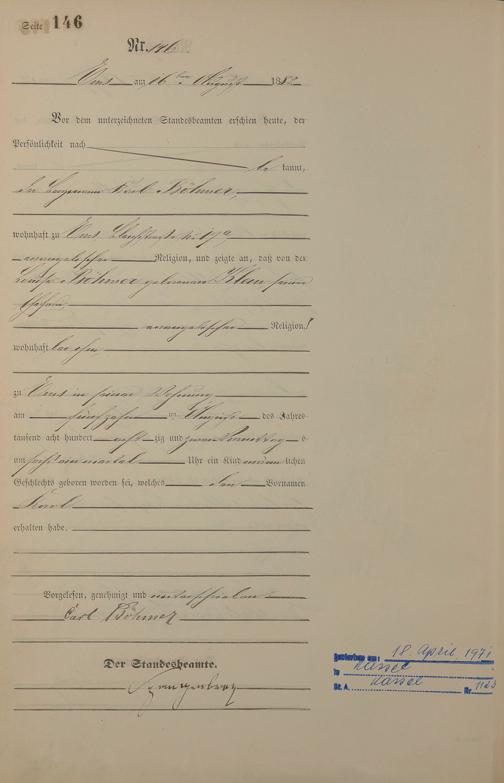 Seite 146
Nr. 146
Ems am 16ten August 1882
Vor dem unterzeichneten Standesbeamten erschien heute, der
Persönlichkeit nach
be kannt,
der Bergmann Karl Böhmer,
wohnhaft zu Ems,
evangelischer Religion, und zeigte an, daß von der
Böhmer geborenen Klein seiner
Ehefrau,
evangelischer Religion,
wohnhaft bei ihm
zu Ems in seiner Wohnung
am fünfzehn ten August des Jahres
tausend acht hundert acht zig und zwei
um fünf ein viertel Uhr ein Kind männ lichen
Geschlechts geboren worden sei, welches den Vornamen
Karl
erhalten habe.
Vorgelesen, genehmigt und unterschrieben
Carl Böhmer
Der Standesbeamte.
Spangenberg
gestorben am: 18. April 1971
in Kassel
St. A. Kassel Nr. 1123